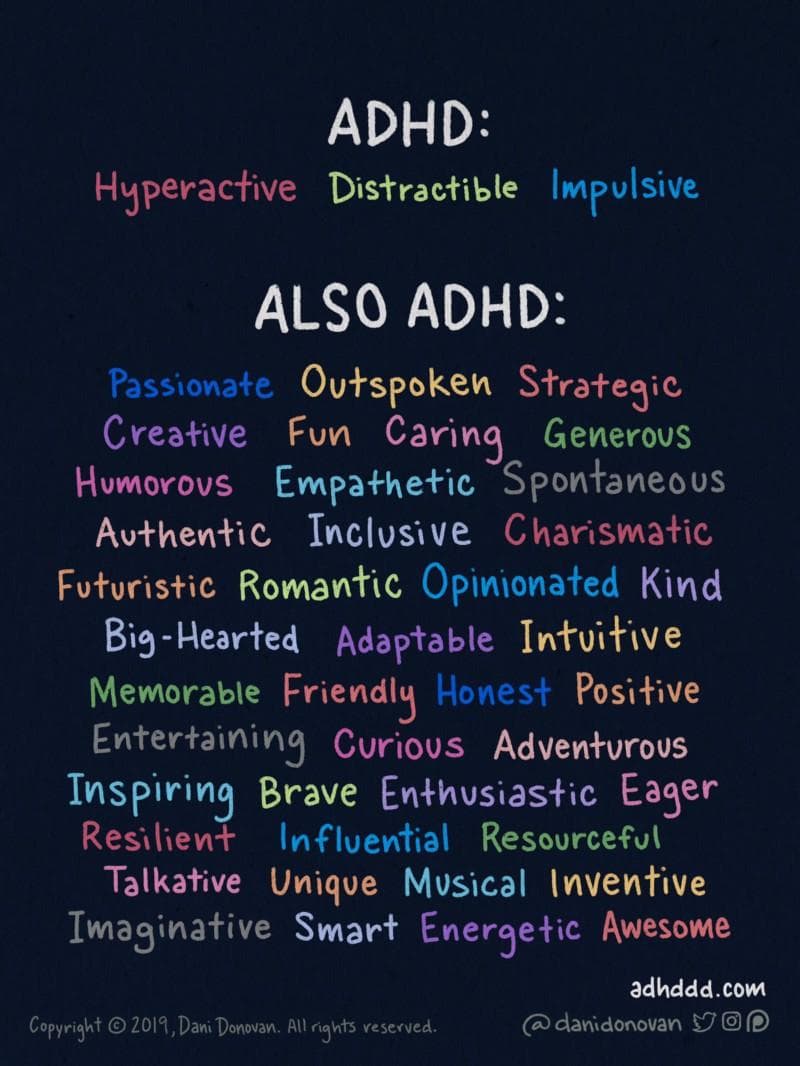 ADHD:
Hyperactive Distractible Impulsive
ALSO ADHD:
Passionate Outspoken Strategic
Creative Fun Caring Generous
Humorous Empathetic Spontaneous
Authentic Inclusive Charismatic
Futuristic Romantic Opinionated Kind
Big-Hearted Adaptable Intuitive
Memorable Friendly Honest Positive
Entertaining Curious Adventurous
Inspiring Brave Enthusiastic Eager
Resilient Influential Resourceful
Talkative Unique Musical Inventive
Imaginative Smart Energetic Awesome
adhddd.com
Copyright © 2019, Dani Donovan. All rights reserved. @danidonovan